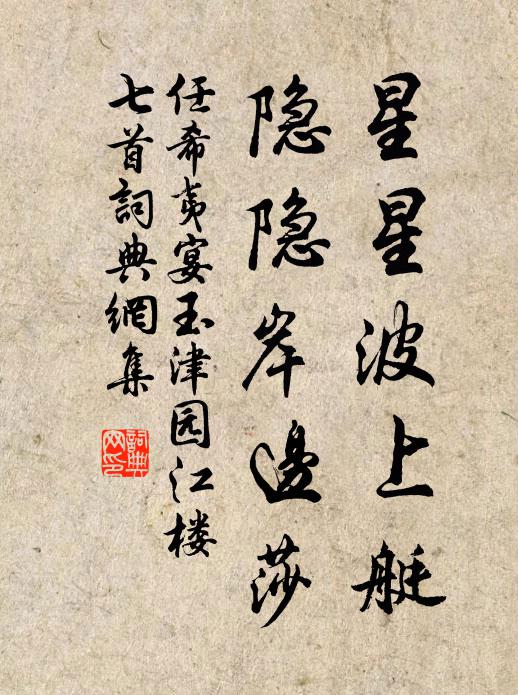 星星波上艇
隐隐岸邊莎
任希夷宴玉津园江楼
七首詞典網集
詞典
网印